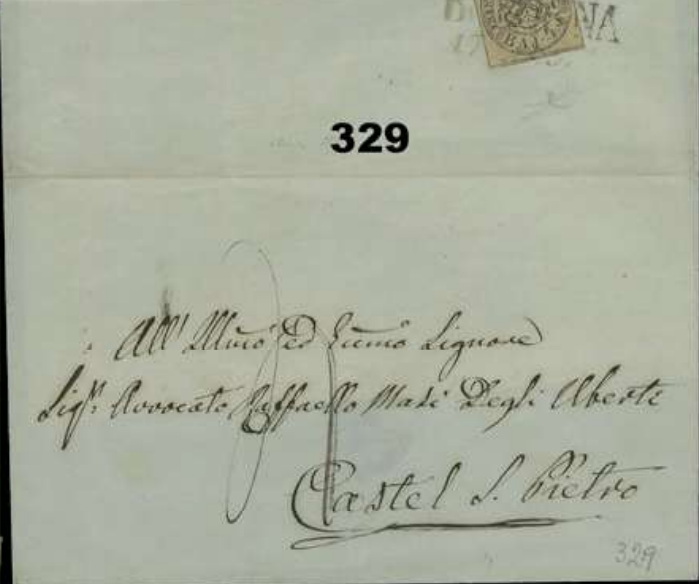 BAJ
NA
17
329
All' Illmo ed Eccmo Signore
Sigr. Avvocato Raffaello Masi Degli Alberti
Castel S. Pietro
329